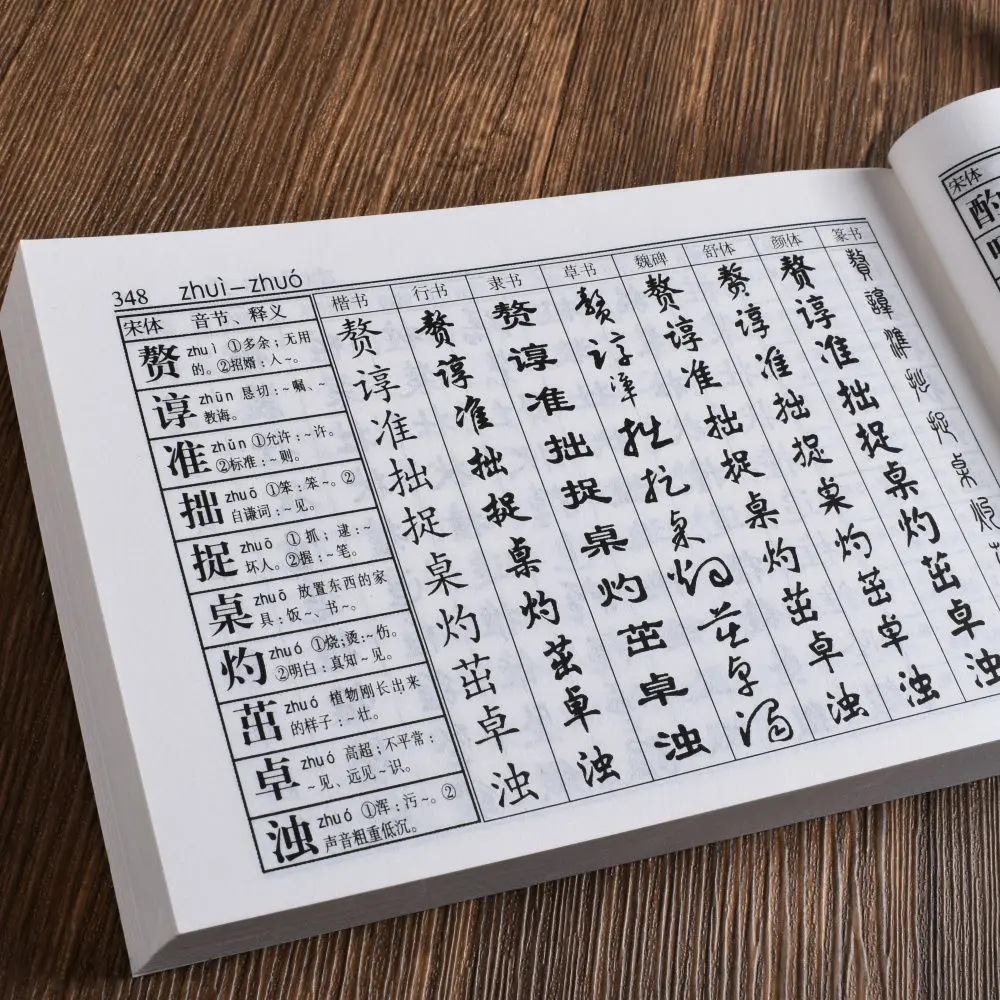 348 zhuì—zhuó
宋体 音节、释义 楷书 行书 隶书 草书 魏碑 舒体 颜体 篆书
赘 zhuì ①多余;无用
的。②招婚:人~。
赘 赘 赘 赘 赘 赘 赘 贅
谆 zhūn 恳切:~嘱、~
教海。
谆 谆 谆 谆 谆 谆 谆 諄
准 zhǔn ①允许:~许。
②标准:~则。
准 准 准 准 准 准 准 準
拙 zhuó ①笨:笨~。②
自谦词:~见。
拙 拙 拙 拙 拙 拙 拙 拙
捉 zhuō ①抓;逮:~
坏人。②握:~笔。
捉 捉 捉 捉 捉 捉 捉 捉
桌 zhuō 放置东西的家
具:饭~、书~。
桌 桌 桌 桌 桌 桌 桌 桌
灼 zhuó ①烧;烫:~伤。
②明白:真知~见。
灼 灼 灼 灼 灼 灼 灼 灼
茁 zhuó 植物刚长出来
的样子:~壮。
茁 茁 茁 茁 茁 茁 茁
卓 zhuó 高超;不平常:
~见、远见~识。
卓 卓 卓 卓 卓 卓 卓
浊 zhuó ①浑:污~。②
声音粗重低沉。
浊 浊 浊 浊 浊 浊 浊
宋体
酌